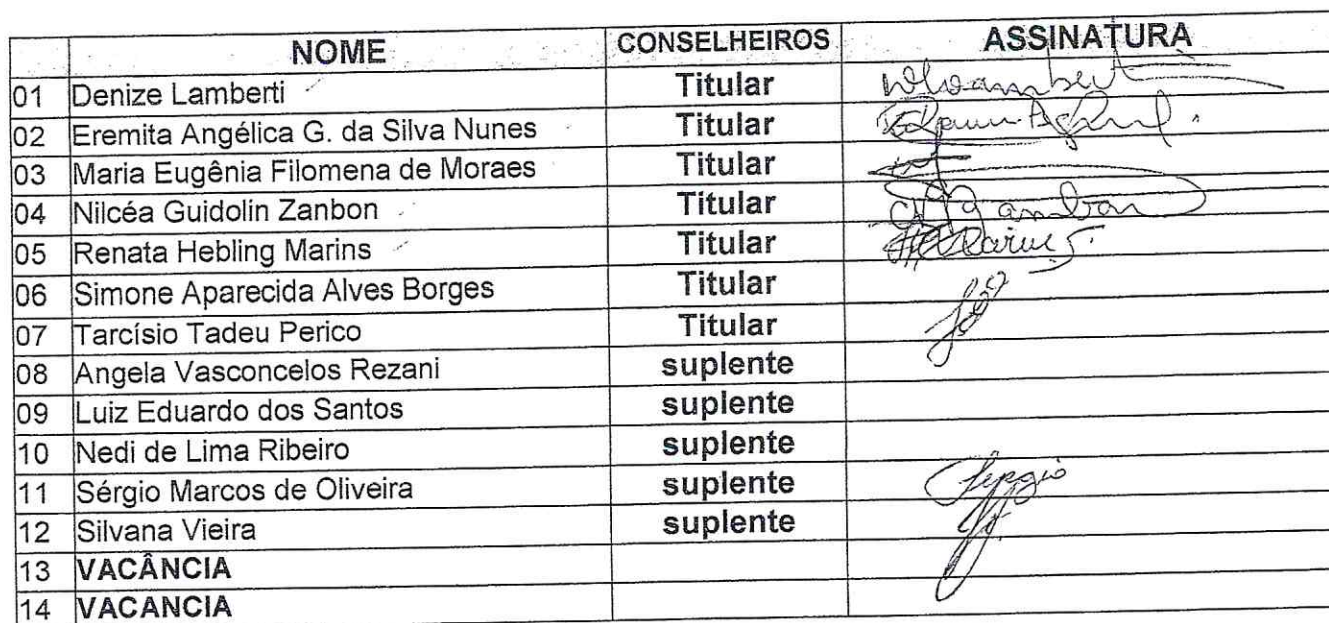 NOME CONSELHEIROS ASSINATURA
01 Denize Lamberti Titular
02 Eremita Angélica G. da Silva Nunes Titular
03 Maria Eugênia Filomena de Moraes Titular
04 Nilcéa Guidolin Zanbon Titular
05 Renata Hebling Marins Titular
06 Simone Aparecida Alves Borges Titular
07 Tarcísio Tadeu Perico Titular
08 Angela Vasconcelos Rezani suplente
09 Luiz Eduardo dos Santos suplente
10 Nedi de Lima Ribeiro suplente
11 Sérgio Marcos de Oliveira suplente Sérgio
12 Silvana Vieira suplente
13 VACÂNCIA
14 VACANCIA